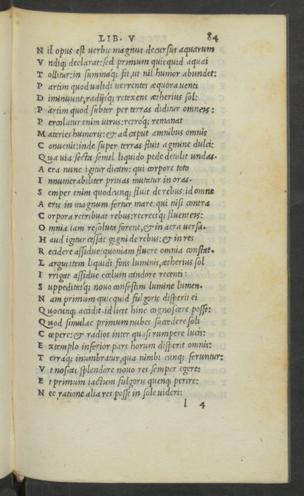 LIB. V 84
N il opus est uerbis magnus decursus aquarum
V ndiq; declarat: sed primum quicquid aquai
T ollitur: in summaq; fit, ut nil humor abundet:
P artim quod ualidi uerrentes aequora uenti
D iminuunt, radijsq; retexens aetherius sol:
P artim quod subter per terras diditur omneis:
P ercolatur enim uirus: retroq; remanat
M ateries humoris: & ad caput amnibus omnis
C onuenit: inde super terras fluit agmine dulci:
Q ua uia secta semel liquido pede detulit undas.
A era nunc igitur dicam: qui corpore toto
I nnumerabiliter priuas mutatur in oras.
S emper enim quodcunq; fluit de rebus: id omne
A eris in magnum fertur mare: qui nisi contra
C orpora retribuat rebus: recreetq; fluenteis:
O mnia iam resoluta forent, & in aera uersa.
H aud igitur cessat gigni de rebus: & in res
R ecidere assidue: quoniam fluere omnia constat.
L argus item liquidi fons luminis, aetherius sol
I rrigat assidue coelum candore recenti:
S uppeditatq; nouo confestim lumine lumen.
N am primum quicquid fulgoris disperit ei
Q uocunq; accidit: id licet hinc cognoscere possis:
Q uod simulac primum nubes succedere soli
C oepere: & radios inter quasi rumpere lucis:
E xtemplo inferior pars horum disperit omnis:
T erraq; inumbratur, qua nimbi cunq; feruntur:
V t noscas splendore nouo res semper egere:
E t primum iactum fulgoris quenq; perire:
N ec ratione alia res posse in sole uideri:
l 4